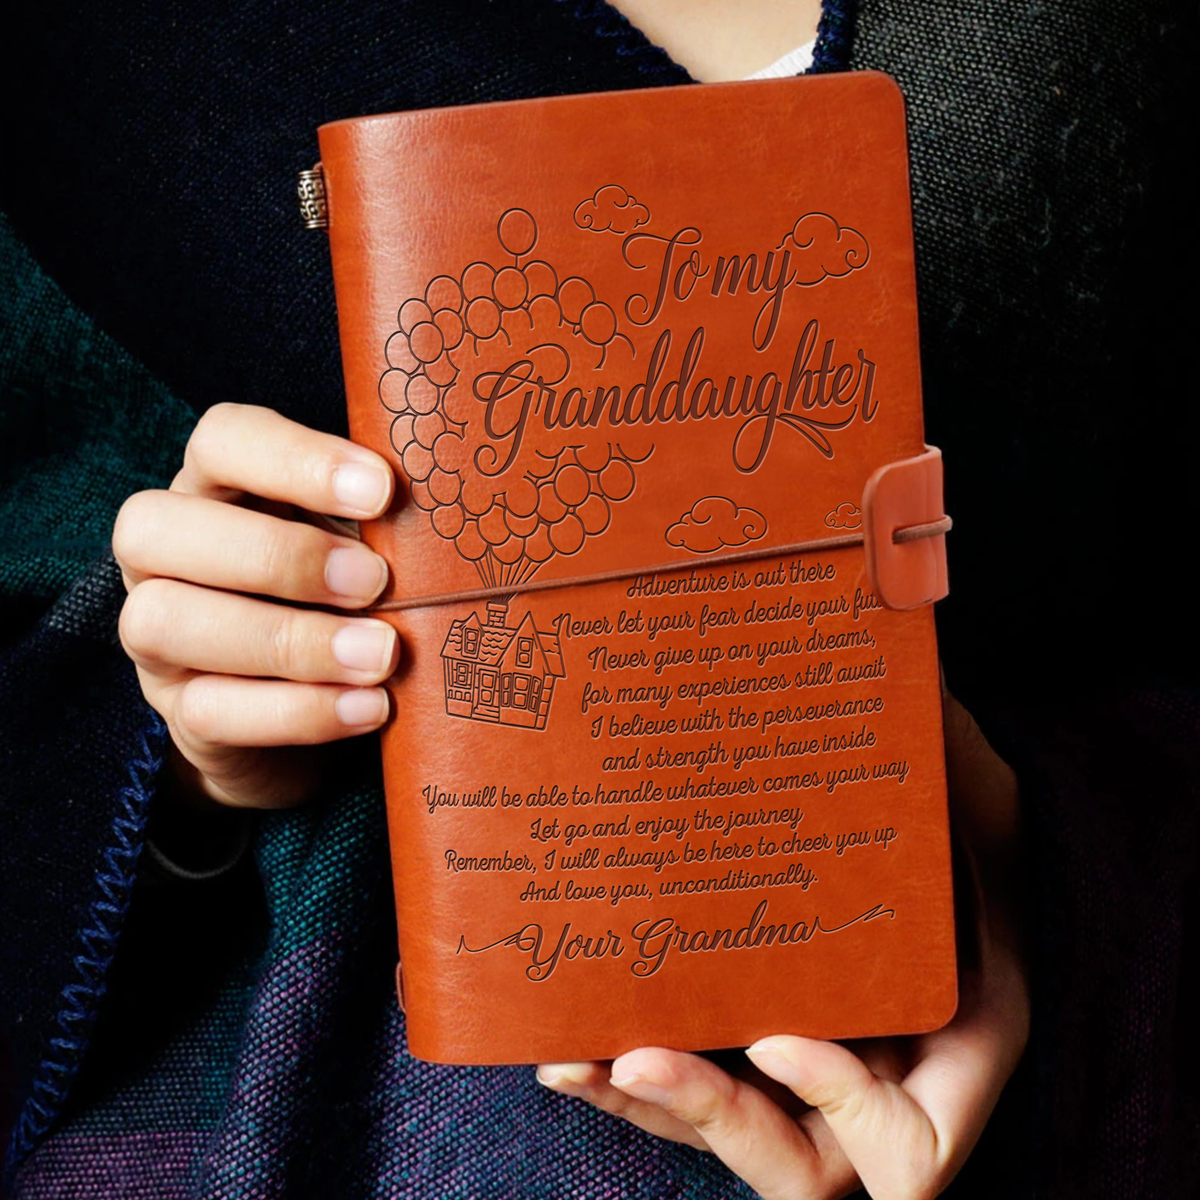 To my
Granddaughter
Adventure is out there
Never let your fear decide your
Never give up on your dreams,
for many experiences still await
I believe with the perseverance
and strength you have inside
You will be able to handle whatever comes your way
Let go and enjoy the journey
Remember, I will always be here to cheer you up
And love you, unconditionally.
Your Grandma